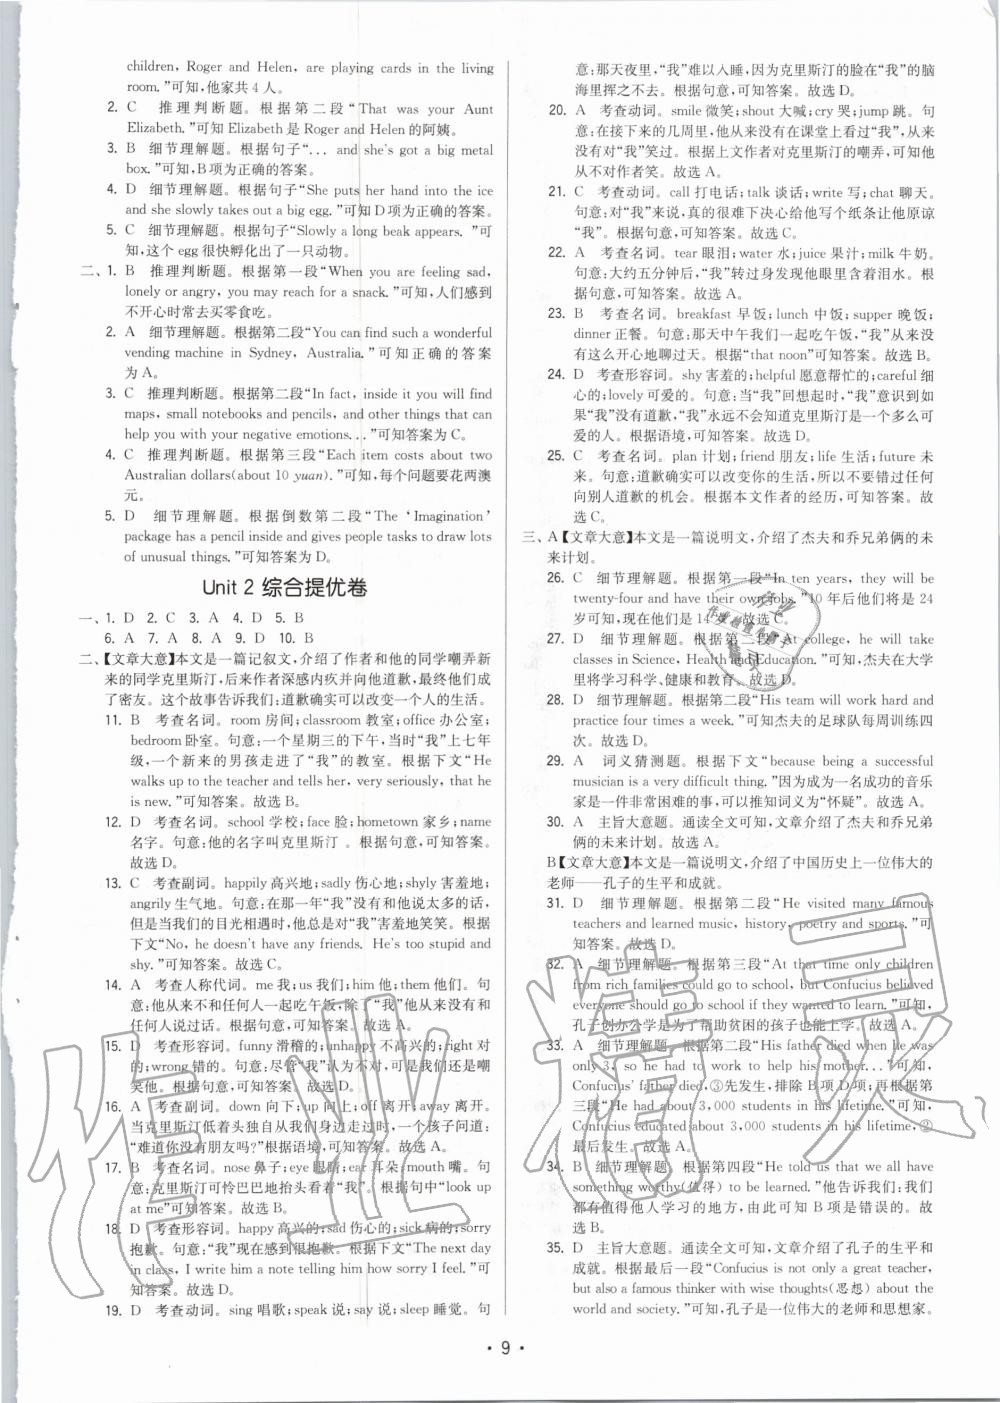 children, Roger and Helen, are playing cards in the living
room. ”可知,他家共 4 人。
2. C 推理判断题。根据第二段“That was your Aunt
Elizabeth. ”可知 Elizabeth 是 Roger and Helen 的阿姨。
3. B 细节理解题。根据句子“... and she's got a big metal
box. ”可知,B 项为正确的答案。
4. D 细节理解题。根据句子“She puts her hand into the ice
and she slowly takes out a big egg. ”可知 D 项为正确的答案。
5. C 细节理解题。根据句子“Slowly a long beak appears. ”可
知,这个 egg 很快孵化出了一只动物。
二、1. B 推理判断题。根据第一段“When you are feeling sad,
lonely or angry, you may reach for a snack. ”可知,人们感到
不开心时常去买零食吃。
2. A 细节理解题。根据第二段“You can find such a wonderful
vending machine in Sydney, Australia. ”可知正确的答案
为 A。
3. C 推理判断题。根据第二段“In fact, inside it you will find
maps, small notebooks and pencils, and other things that can
help you with your negative emotions... ”可知答案为 C。
4. C 推理判断题。根据第三段“Each item costs about two
Australian dollars(about 10 yuan). ”可知,每个问题要花两澳
元。
5. D 细节理解题。根据倒数第二段“The ‘Imagination’
package has a pencil inside and gives people tasks to draw lots
of unusual things. ”可知答案为 D。
Unit 2 综合提优卷
一、1. D 2. C 3. A 4. D 5. B
6. A 7. A 8. A 9. D 10. B
二、【文章大意】本文是一篇记叙文,介绍了作者和他的同学嘲弄新
来的同学克里斯汀,后来作者深感内疚并向他道歉,最终他们成
了密友。这个故事告诉我们:道歉确实可以改变一个人的生活。
11. B 考查名词。room 房间;classroom 教室;office 办公室;
bedroom 卧室。句意:一个星期三的下午,当时“我”上七年
级,一个新来的男孩走进了“我”的教室。根据下文“He
walks up to the teacher and tells her, very seriously, that he
is new. ”可知答案。故选 B。
12. D 考查名词。school 学校;face 脸;hometown 家乡;name
名字。句意:他的名字叫克里斯汀 。根据句意,可知答案。
故选 D。
13. C 考查副词。happily 高兴地;sadly 伤心地;shyly 害羞地;
angrily 生气地。句意:在那一年“我”没有和他说太多的话,
但是当我们的目光相遇时,他总是对“我”害羞地笑笑。根据
下文“No, he doesn't have any friends. He's too stupid and
shy. ”可知答案。故选 C。
14. A 考查人称代词。me 我;us 我们;him 他;them 他们。句
意:他从来不和任何人一起吃午饭,除了“我”他从来没有和
任何人说过话。根据句意,可知答案。故选 A。
15. D 考查形容词。funny 滑稽的;unhappy 不高兴的;right 对
的;wrong 错的。句意:尽管“我”认为不对,可是我们还是嘲
笑他。根据句意,可知答案。故选 D。
16. A 考查副词。down 向下;up 向上;off 离开;away 离开。
当克里斯汀低着头独自从我们身边走过时,一个孩子问道:
“难道你没有朋友吗?”根据语境,可知答案。故选 A。
17. B 考查名词。nose 鼻子;eye 眼睛;ear 耳朵;mouth 嘴。句
意:克里斯汀可怜巴巴地抬头看着“我”。根据句中“look up
at me”可知答案。故选 B。
18. D 考查形容词。happy 高兴的;sad 伤心的;sick 病的;sorry
抱歉。句意:“我”现在感到很抱歉。根据下文“The next day
in class, I write him a note telling him how sorry I feel. ”可
知答案。故选 D。
19. D 考查动词。sing 唱歌;speak 说;say 说;sleep 睡觉。句
意:那天夜里,“我”难以入睡,因为克里斯汀的脸在“我”的脑
海里挥之不去。根据句意,可知答案。故选 D。
20. A 考查动词。smile 微笑;shout 大喊;cry 哭;jump 跳。句
意:在接下来的几周里,他从来没有在课堂上看过“我”,从来
没有对“我”笑过。根据上文作者对克里斯汀的嘲弄,可知他
从不对作者笑。故选 A。
21. C 考查动词。call 打电话;talk 谈话;write 写;chat 聊天。
句意:对“我”来说,真的很难下决心给他写个纸条让他原谅
“我”。根据句意,可知答案。故选 C。
22. A 考查名词。tear 眼泪;water 水;juice 果汁;milk 牛奶。
句意:大约五分钟后,“我”转过身发现他眼里含着泪水。根
据句意,可知答案。故选 A。
23. B 考查名词。breakfast 早饭;lunch 中饭;supper 晚饭;
dinner 正餐。句意:那天中午我们一起吃午饭,“我”从来没
有这么开心地聊过天。根据“that noon”可知答案。故选 B。
24. D 考查形容词。shy 害羞的;helpful 愿意帮忙的;careful 细
心的;lovely 可爱的。句意:当“我”回想起时,“我”意识到如
果“我”没有道歉,“我”永远不会知道克里斯汀是一个多么可
爱的人。根据语境,可知答案。故选 D。
25. C 考查名词。plan 计划;friend 朋友;life 生活;future 未
来。句意:道歉确实可以改变你的生活,所以不要错过任何
向别人道歉的机会。根据本文作者的经历,可知答案。故
选 C。
三、A【文章大意】本文是一篇说明文,介绍了杰夫和乔兄弟俩的未
来计划。
26. C 细节理解题。根据第一段“In ten years, they will be
twenty-four and have their own jobs. ”10 年后他们将是 24
岁可知,现在他们是 14 岁。故选 C。
27. D 细节理解题。根据第二段“At college, he will take
classes in Science, Health and Education. ”可知,杰夫在大学
里将学习科学、健康和教育。故选 D。
28. D 细节理解题。根据第二段“His team will work hard and
practice four times a week. ”可知杰夫的足球队每周训练四
次。故选 D。
29. A 词义猜测题。根据下文“because being a successful
musician is a very difficult thing. ”因为成为一名成功的音乐
家是一件非常困难的事,可以推知词义为“怀疑”。故选 A。
30. A 主旨大意题。通读全文可知,文章介绍了杰夫和乔兄弟
俩的未来计划。故选 A。
B【文章大意】本文是一篇说明文,介绍了中国历史上一位伟大的
老师——孔子的生平和成就。
31. D 细节理解题。根据第二段“He visited many famous
teachers and learned music, history, poetry and sports. ”可
知答案。故选 D。
32. A 细节理解题。根据第三段“At that time only children
from rich families could go to school, but Confucius believed
everyone should go to school if they wanted to learn. ”可知,
孔子创办公学是为了帮助贫困的孩子也能上学。故选 A。
33. A 细节理解题。根据第二段“His father died when he was
only 3, so he had to work to help his mother... ”可知,
Confucius' father died,③先发生,排除 B 项 D 项;再根据第
三段“He had about 3,000 students in his lifetime. ”可知,
Confucius educated about 3,000 students in his lifetime,②
最后发生。故选 A。
34. B 细节理解题。根据第四段“He told us that we all have
something worthy(值得) to be learned. ”他告诉我们:我们
都有值得他人学习的地方,由此可知 B 项是错误的。故
选 B。
35. D 主旨大意题。通读全文可知,文章介绍了孔子的生平和
成就。根据最后一段“Confucius is not only a great teacher,
but also a famous thinker with wise thoughts(思想) about
the world and society. ”可知,孔子是一位伟大的老师和思想家。
• 9 •
作业精灵